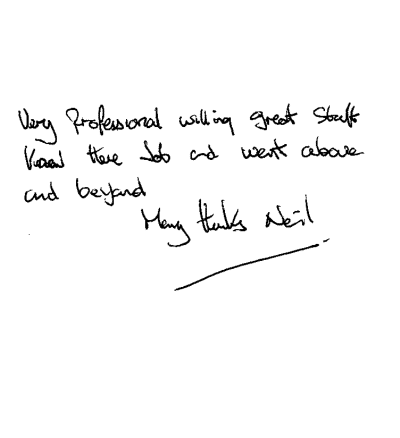 Very Professional willing great Staff
Know there Job and went above
and beyond
Many thanks Neil